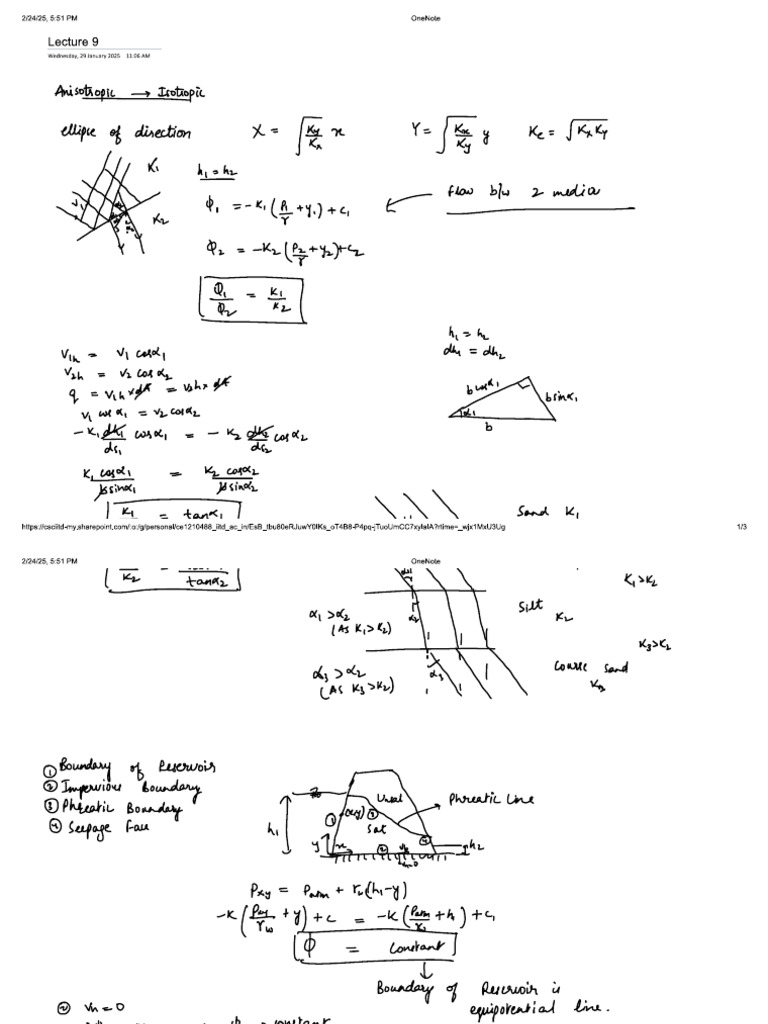 2/24/25, 5:51 PM
OneNote
Lecture 9
Wednesday, 29 January 2025 11:06 AM
Anisotropic → Isotropic
ellipse of direction X = √(Ky/Kx) x Y = √(Kx/Ky) y Ke = √(KxKy)
K1
K2
h1 = h2
Φ1 = -K1 (P1/γ + y1) + c1
flow b/w 2 media
Φ2 = -K2 (P2/γ + y2) + c2
Φ1/Φ2 = K1/K2
V1h = V1 cosα1
V2h = V2 cosα2
q = V1h × dA = V2h × dA
V1 cosα1 = V2 cosα2
-K1 dh1/ds1 cosα1 = -K2 dh2/ds2 cosα2
K1 cosα1/bsinα1 = K2 cosα2/bsinα2
K1 = tanα1
h1 = h2
dh1 = dh2
b cosα1
b sinα1
α1
b
Sand K1
https://csciitd-my.sharepoint.com/:o:/g/personal/ce1210488_iitd_ac_in/EsB_tbu80eRJuwY0fKs_oT4B8-P4pq-jTuoUmCC7xyfafA?rtime=_wjx1MxU3Ug
1/3
2/24/25, 5:51 PM
OneNote
K2 tanα2
K1 > K2
α1 > α2
(As K1 > K2)
α2
Silt
K2
K3 > K2
α3 > α2
(As K3 > K2)
α3
Course sand
K3
① Boundary of Reservoir
② Impervious Boundary
③ Phreatic Boundary
④ Seepage Face
h1
①
(x,y)
③
Unsat
Sat
Phreatic Line
④
y
x
②
Vn=0
h2
Pxy = Patm + γw(h1-y)
-K (Pxy/γw + y) + c = -K (Patm/γw + h1) + c1
Φ = Constant
Boundary of Reservoir is
equipotential line.
② Vn = 0